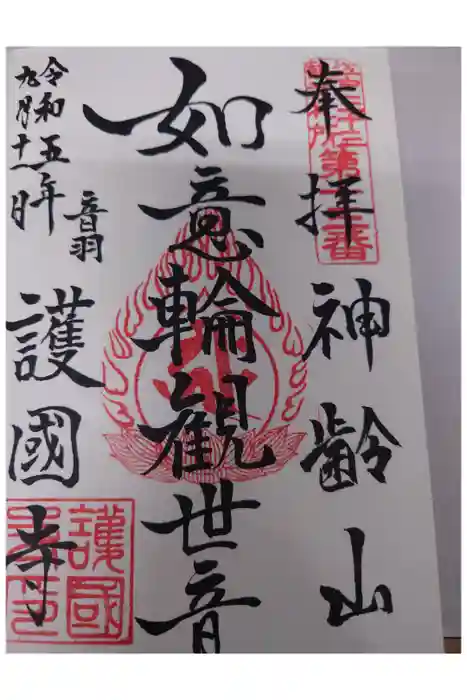 奉拝
神齢山
如意輪観世音
音羽
護國寺
令和五年
九月十一日
護國